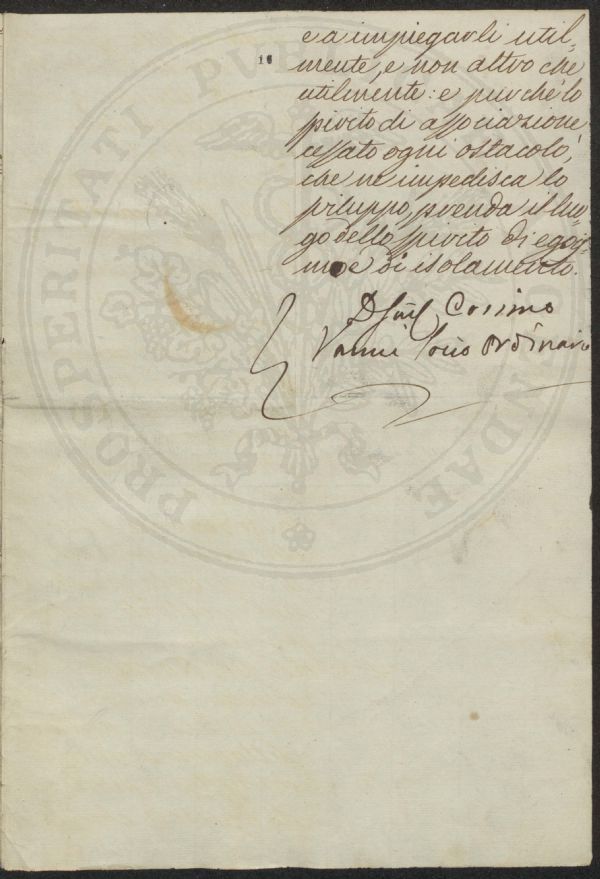 16
e a impiegarli util-
mente, e non altro che
utilmente: e purchè lo
spirito di associazione
cessato ogni ostacolo,
che ne impedisca lo
sviluppo, prenda il luo-
go dello spirito di egois-
mo e di isolamento.
D. Cosimo
Vanni Socio Ordinario
PROSPERITATI PUBLICAE AUGENDAE